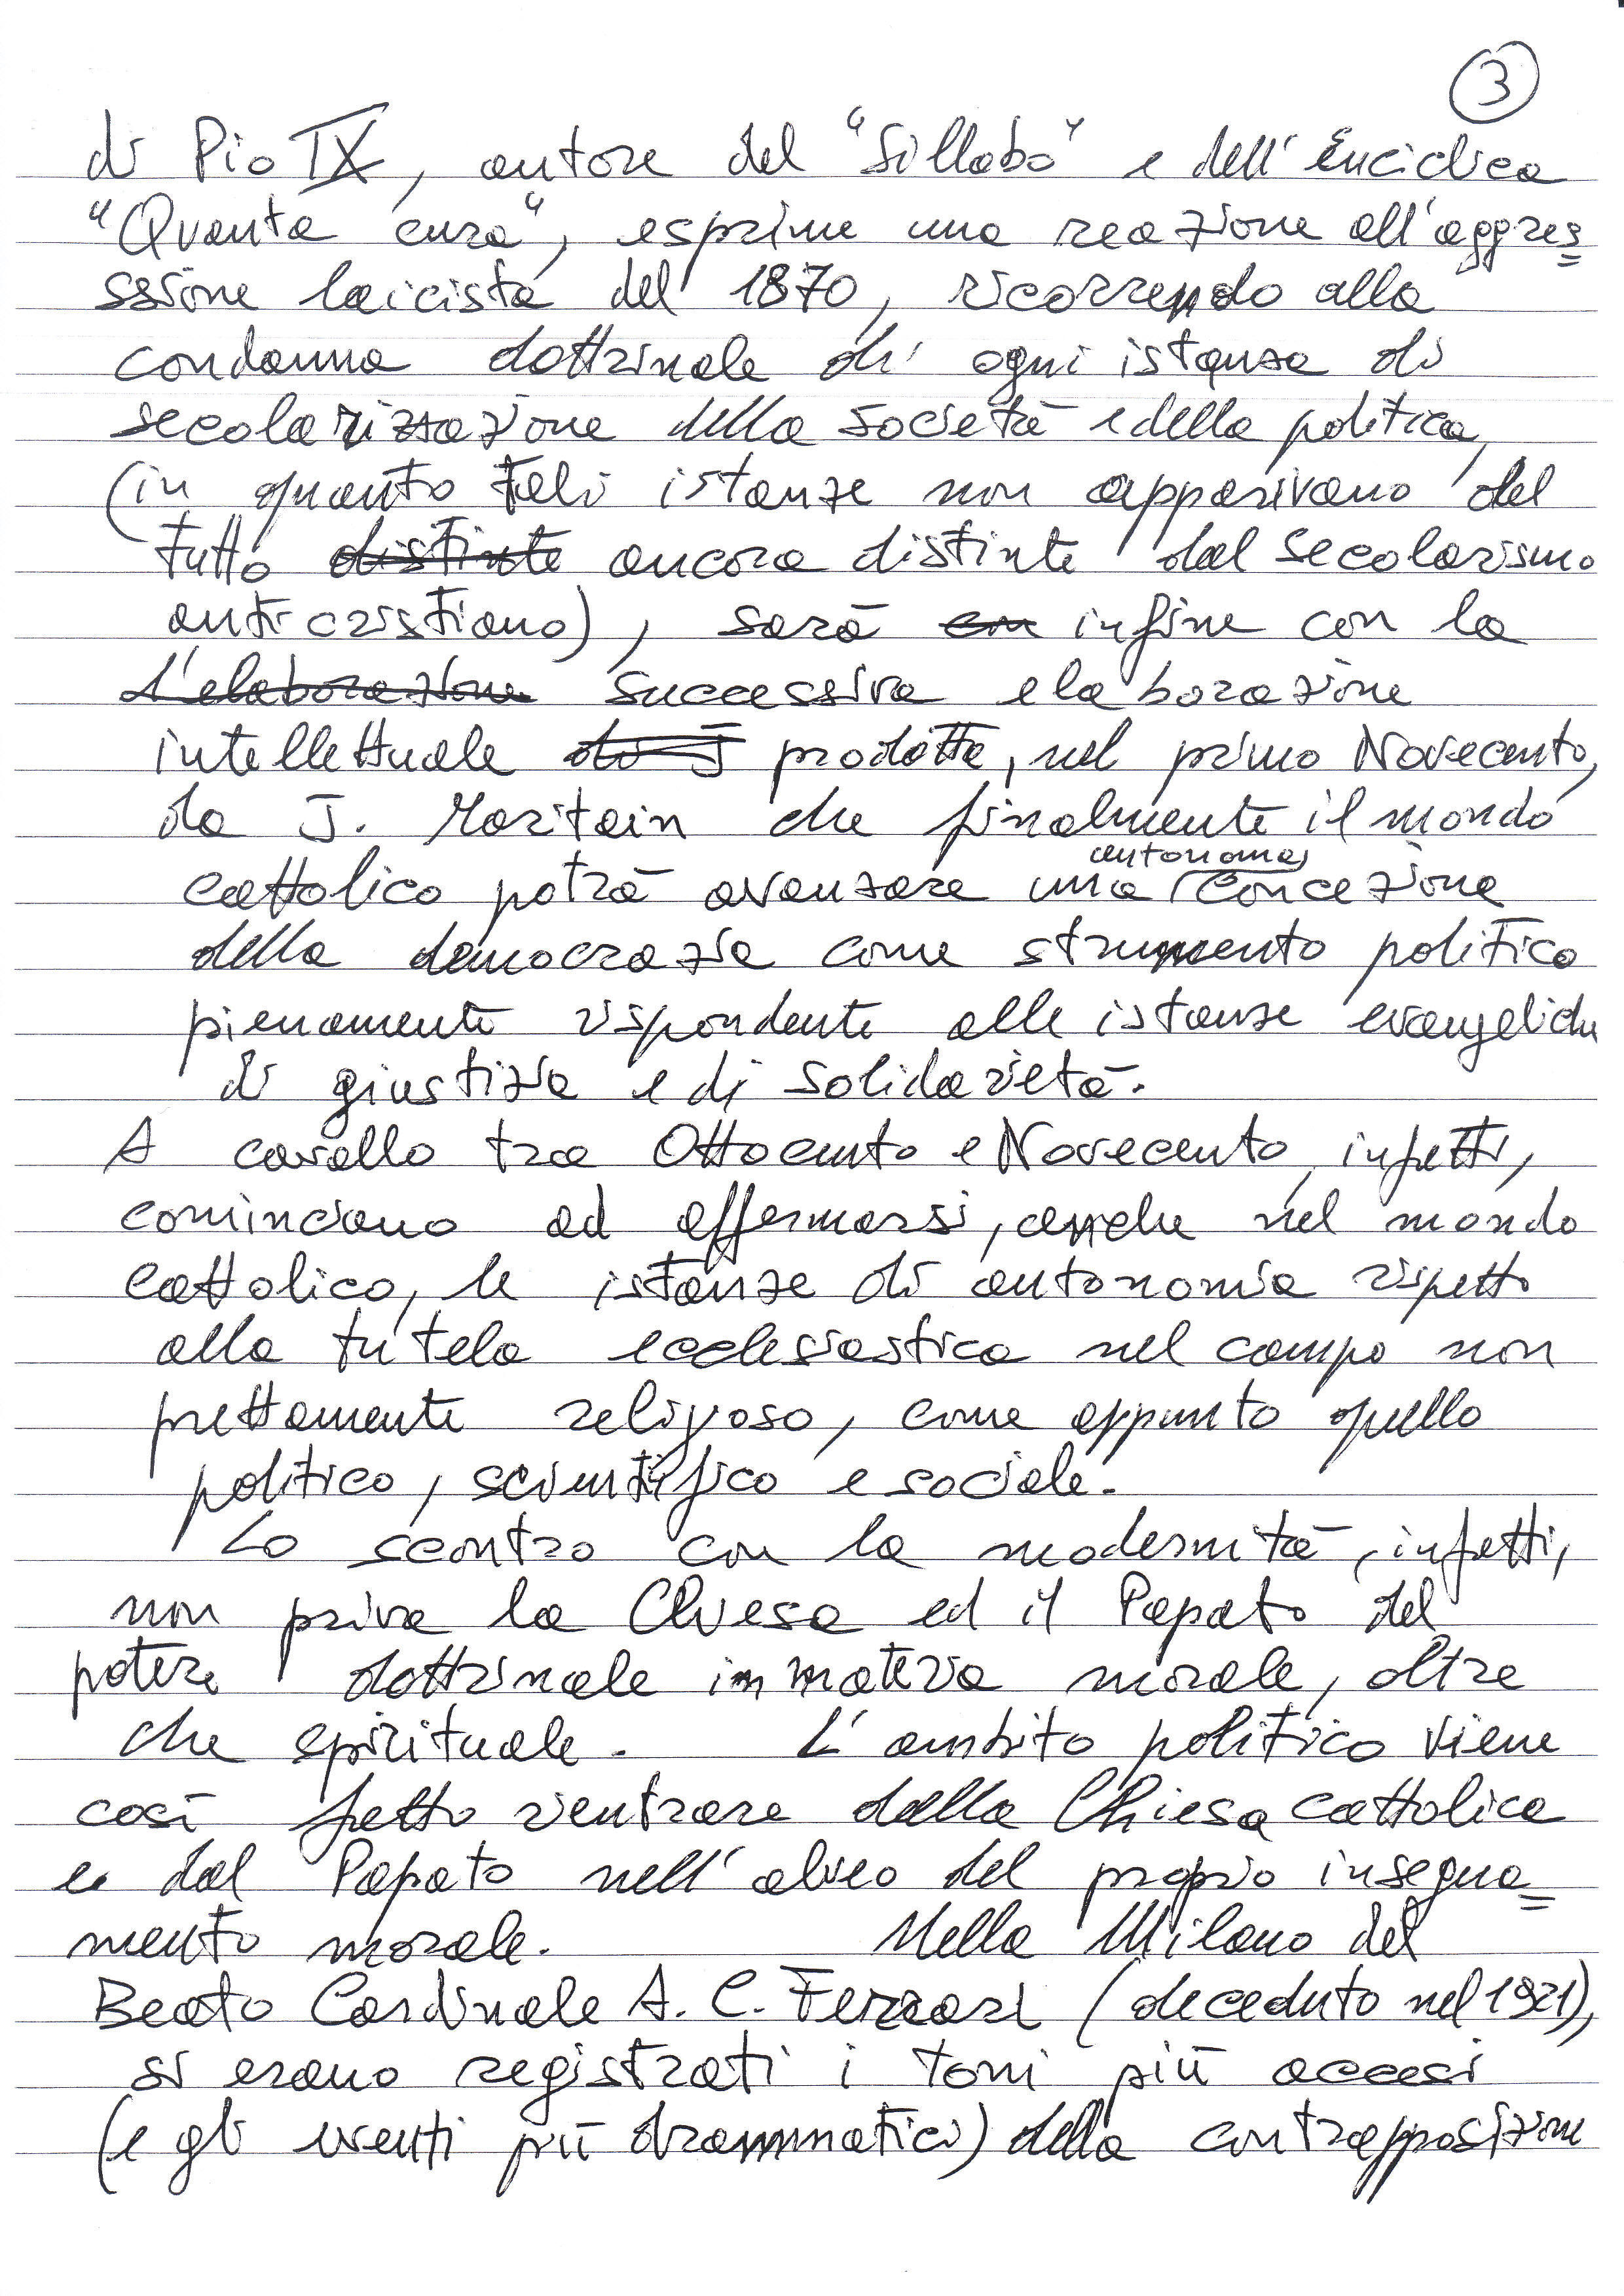 3
di Pio IX, autore del "Sillabo" e dell'Enciclica
"Quanta cura", esprime una reazione all'aggres=
ssione laicista del 1870, ricorrendo alla
condanna dottrinale di ogni istanza di
secolarizzazione della società e della politica,
(in quanto tali istanze non apparivano del
tutto distinte ancora distinte dal secolarismo
anticristiano), sarà con infine con la
l'elaborazione successiva elaborazione
intellettuale di J prodotta, nel primo Novecento,
da J. Maritain che finalmente il mondo
autonoma
cattolico potrà avanzare una concezione
della democrazia come strumento politico
pienamente rispondente alle istanze evangeliche
di giustizia e di solidarietà.
A cavallo tra Ottocento e Novecento, infatti,
cominciano ad affermarsi, anche nel mondo
cattolico, le istanze di autonomia rispetto
alla tutela ecclesiastica nel campo non
prettamente religioso, come appunto quello
politico, scientifico e sociale.
Lo scontro con la modernità, infatti,
non priva la Chiesa ed il Papato del
potere dottrinale in materia morale, oltre
che spirituale. L'ambito politico viene
così fatto rientrare dalla Chiesa cattolica
e dal Papato nell'alveo del proprio insegna=
mento morale. Nella Milano del
Beato Cardinale A. C. Ferrari (deceduto nel 1921),
si erano registrati i toni più accesi
(e gli eventi più drammatici) della contrapposizione